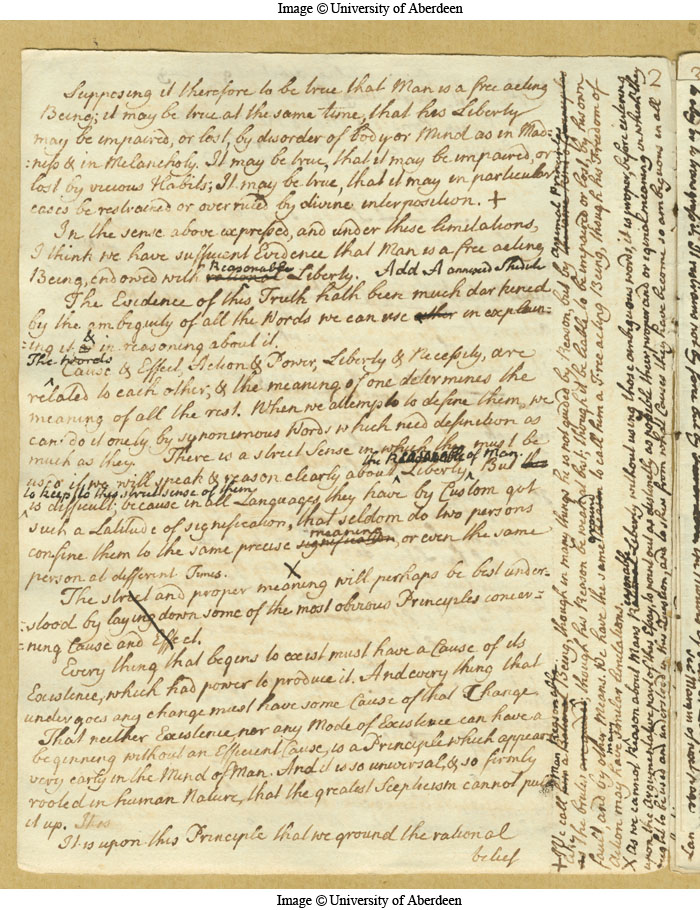 Image © University of Aberdeen
Supposing it therefore to be true that Man is a free acting
Being; it may be true at the same time, that his Liberty
may be impaired, or lost, by disorder of body or Mind as in Mad
:ness & in Melancholy. It may be true, that it may be impaired, or
lost by vicious Habits; It may be true, that it may in particular
cases be restrained or overruled by divine interposition. +
In the sense above expressed, and under these limitations,
I think we have sufficient Evidence that Man is a free acting
Reasonable
Being, endowed with rational Liberty. Add A annexed Shedule
The Evidence of this Truth hath been much darkened
by the ambiguity of all the Words we can use in explain-
&
:ing it in reasoning about it.
The Words
Cause & Effect, Action & Power, Liberty & Necessity, are
related to each other, & the meaning of one determines the
meaning of all the rest. When we attempt to define them we
can do it onely by synonimous Words which need definition as
much as they. There is a strict Sense in which they must be
the Reasonable of Man
used if we will speak & reason clearly about Liberty But
to keep to this strict sense of them
is difficult; because in all Languages, they have by Custom got
such a Latitude of signification, that seldom do two persons
meaning
confine them to the same precise signification, or even the same
person at different Times. X
The strict and proper meaning will perhaps be best under-
:stood by laying down some of the most obvious Principles concer-
:ning Cause and Effect.
Every thing that begins to exist must have a Cause of its
Existence, which had power to produce it. And every thing that
undergoes any change must have some Cause of that Change
That neither Existence, nor any Mode of Existence can have a
beginning without an Efficient Cause, is a Principle which appears
very early in the Mind of Man. And it is so universal, & so firmly
rooted in human Nature, that the greatest Scepticism cannot pull
it up. It is
It is upon this Principle that we ground the rational
belief
2
man Reasonable animal Principles
+ We call him a rational Being, though in many things he is not guided by Reason, but by
like the brutes, though his Reason be weak at first; though it be liable to be impaired or lost, by his own
fault, and by other means. We have the same to call him a Free acting Being, though his Freedom of
may
Action may have similar limitations.
X As we cannot reason about Mans Rational Liberty without using those ambiguous words, it is proper, before entering
upon the Argumentative part of this Essay, to point out as distinctly as possible their proper and original meaning in which they
ought to be used and understood in this Question, and to shew from what Causes they have become so ambiguous in all
Image © University of Aberdeen